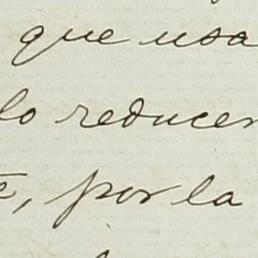 que usa
lo reducen
, por la